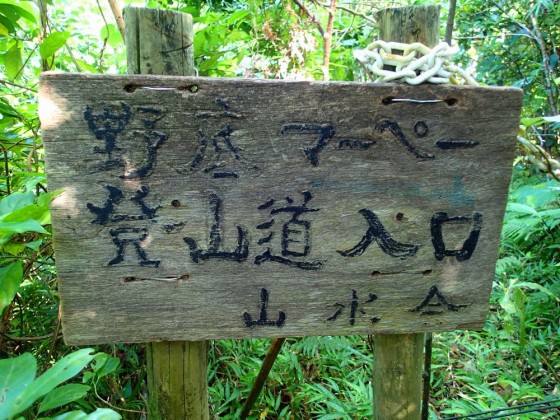 野底マーペー
登山道入口
山水会